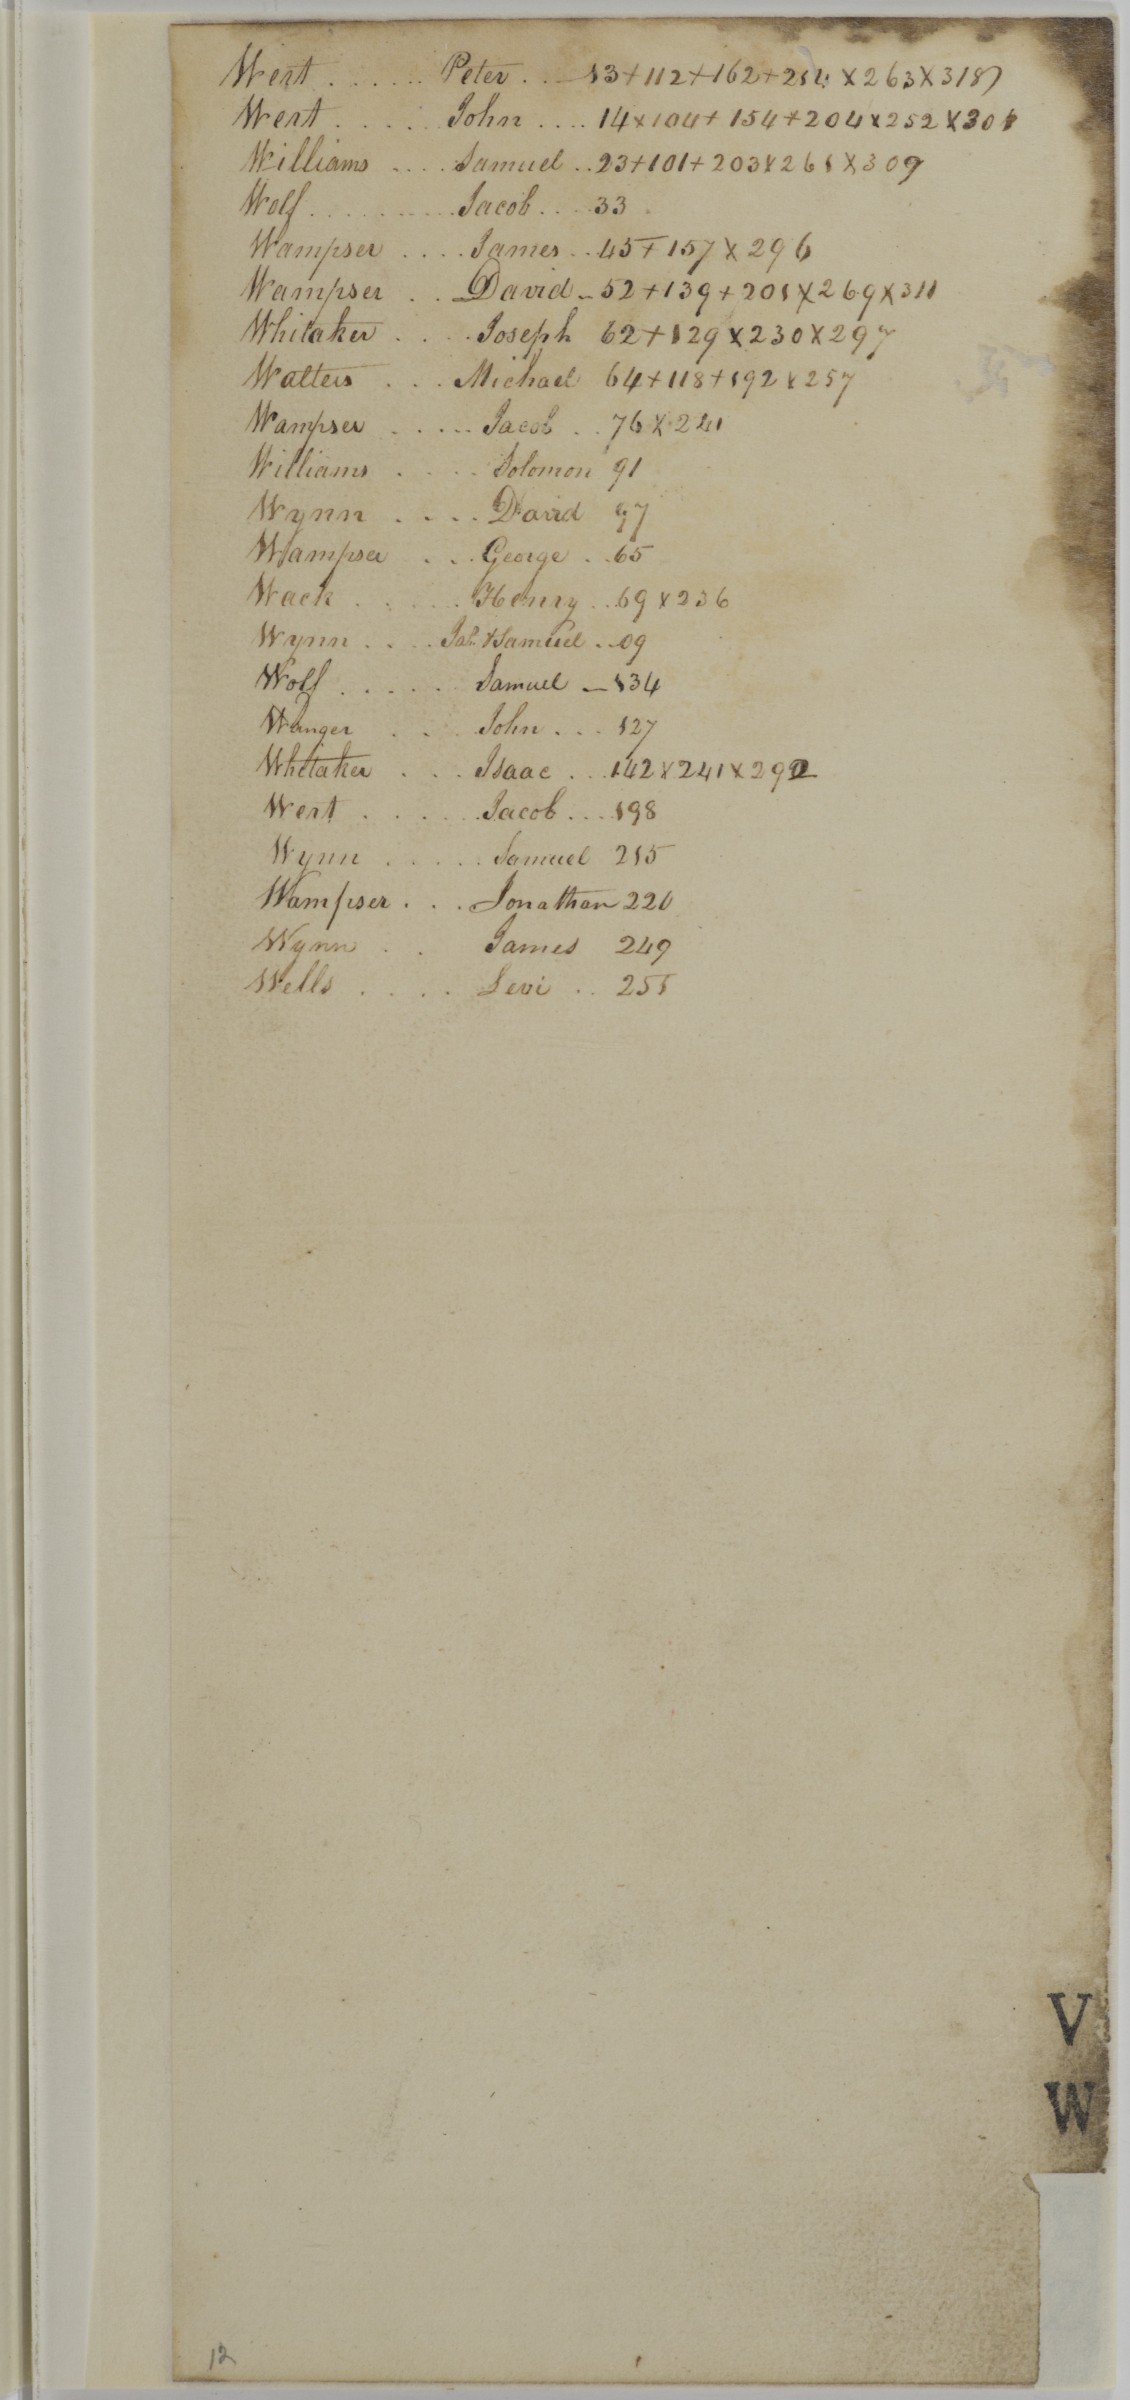 Wert ...... Peter ... 13+112+162+214×263×318
Wert ..... John .... 14×104+154+204×252×301
Williams .... Samuel .. 23+101+203×261×309
Wolf .......... Jacob .... 33
Wampser .... James .. 45+157×296
Wampser .. David - 52+139+201×269×311
Whitaker .... Joseph 62+129×230×297
Walters ... Michael 64+118+192×257
Wampser ..... Jacob .. 76×241
Williams .... Solomon 91
Wynn .... David 97
Wampser ... George .. 65
Wack ...... Henry .. 69×236
Wynn .... & Samuel .. 09
Wolf ...... Samuel - 134
Wanger ... John ... 127
Whitaker ... Isaac ... 142×241×292
Wert ...... Jacob ... 198
Wynn ..... Samuel 215
Wampser ... Jonathan 220
Wynn .. James 249
Wells .... Levi .. 251
V
W
12